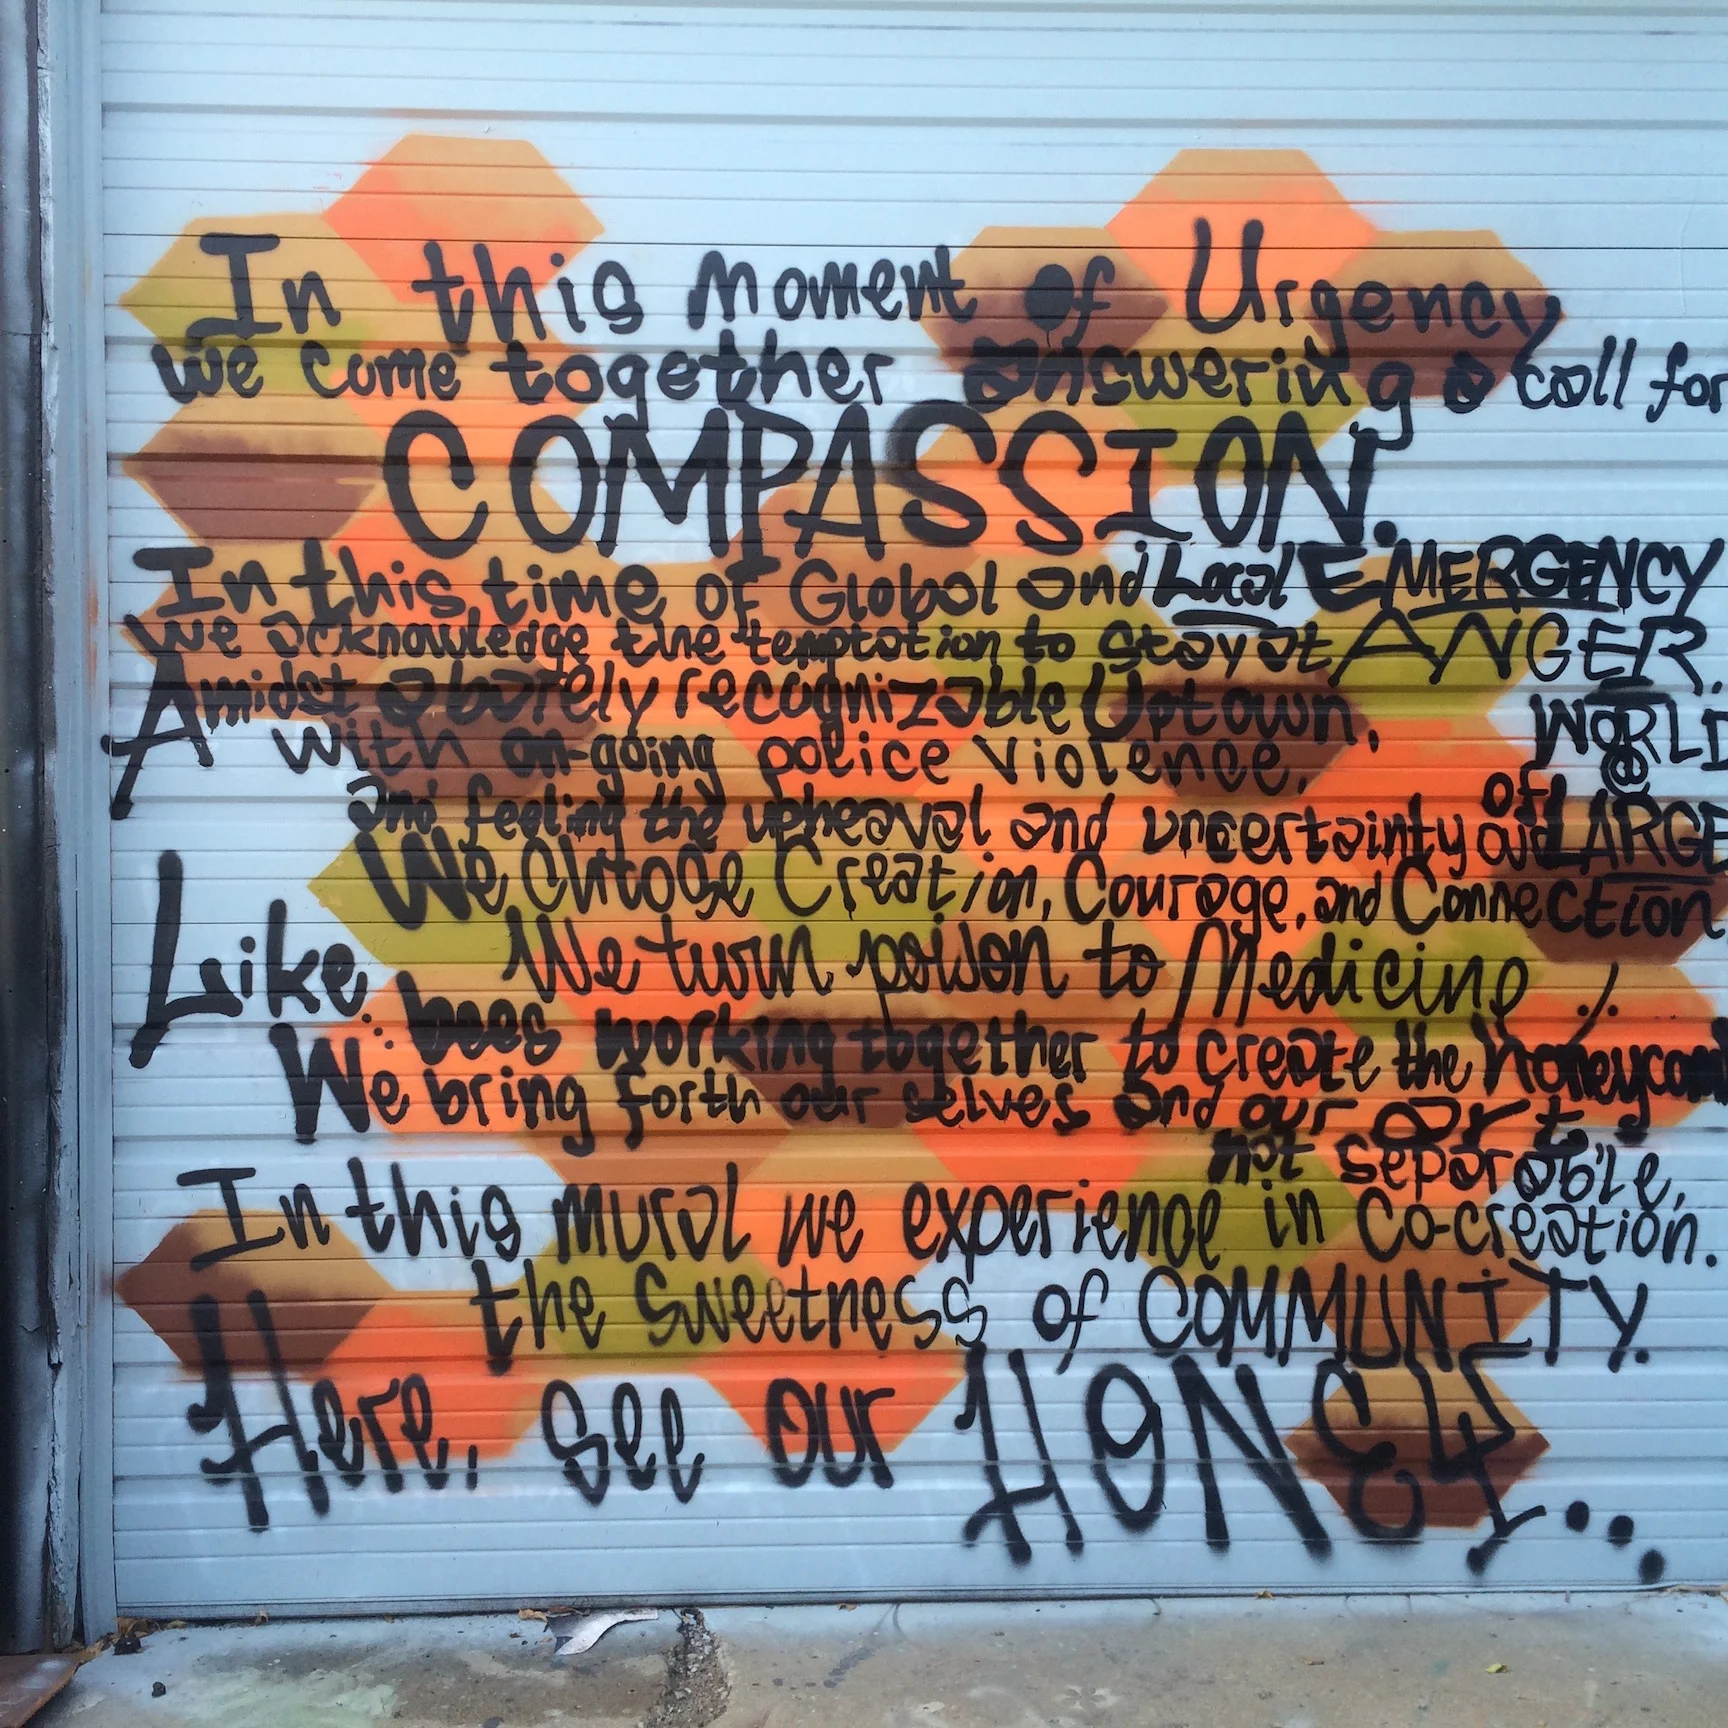 In this moment of Urgency
we come together answering a call for
COMPASSION.
In this time of Global and Local EMERGENCY
We acknowledge the temptation to stay at ANGER.
Amidst a barely recognizable Uptown,
with on-going police violence,
and feeling the upheaval and uncertainty of our WORLD @ LARGE
We CHOOSE Creation, Courage, and Connection
We turn poison to Medicine...
Like bees working together to create the honeycomb
We bring forth our selves and our art,
not separable,
In this mural we experience in Co-creation.
the Sweetness of COMMUNITY.
Here, see our HONEY...